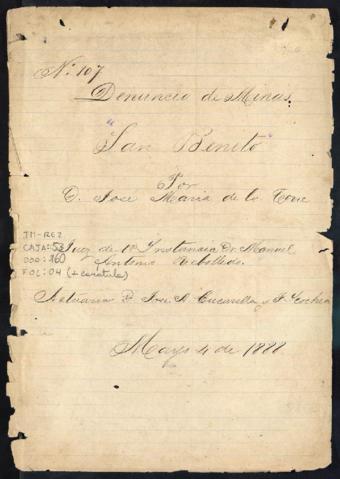 Nº 107
Denuncio de Minas
"San Benito"
Por
D. José Maria de la Torre
JM-REZ
CAJA: 53
DOC: 160
FOL: 04 (+ caratula)
Juez de 1ª Instancia Dr. Manuel
Antonio Rebolledo.
Actuaria D. José A.
Mayo 4 de 1888